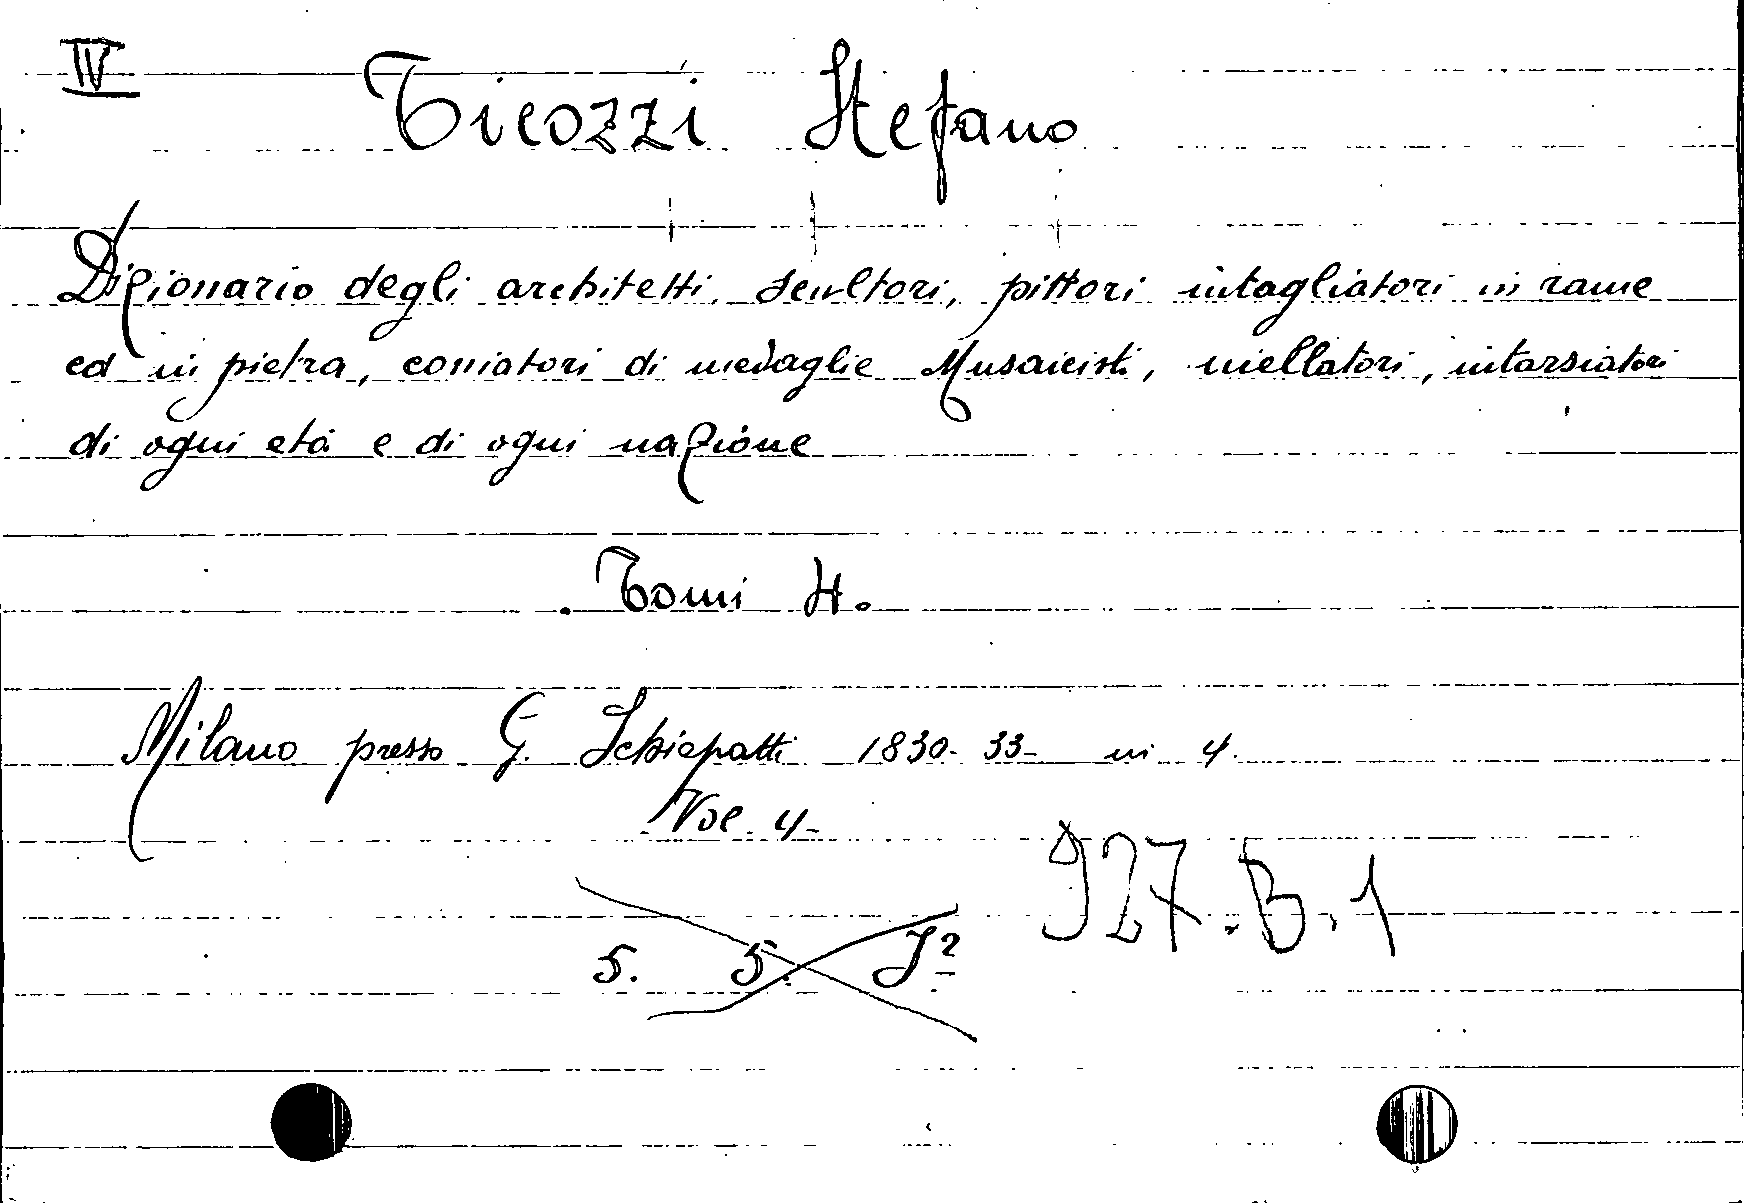 IV
Ticozzi Stefano
Dizionario degli architetti, scultori, pittori intagliatori in rame
ed in pietra, coniatori di medaglie Musaicisti, niellatori, intarsiatori
di ogni età e di ogni nazione
Tomi 4.
Milano presso G. Schiepatti 1830-33- in 4.
Vol. 4-
927.B.1
5. 5. J²